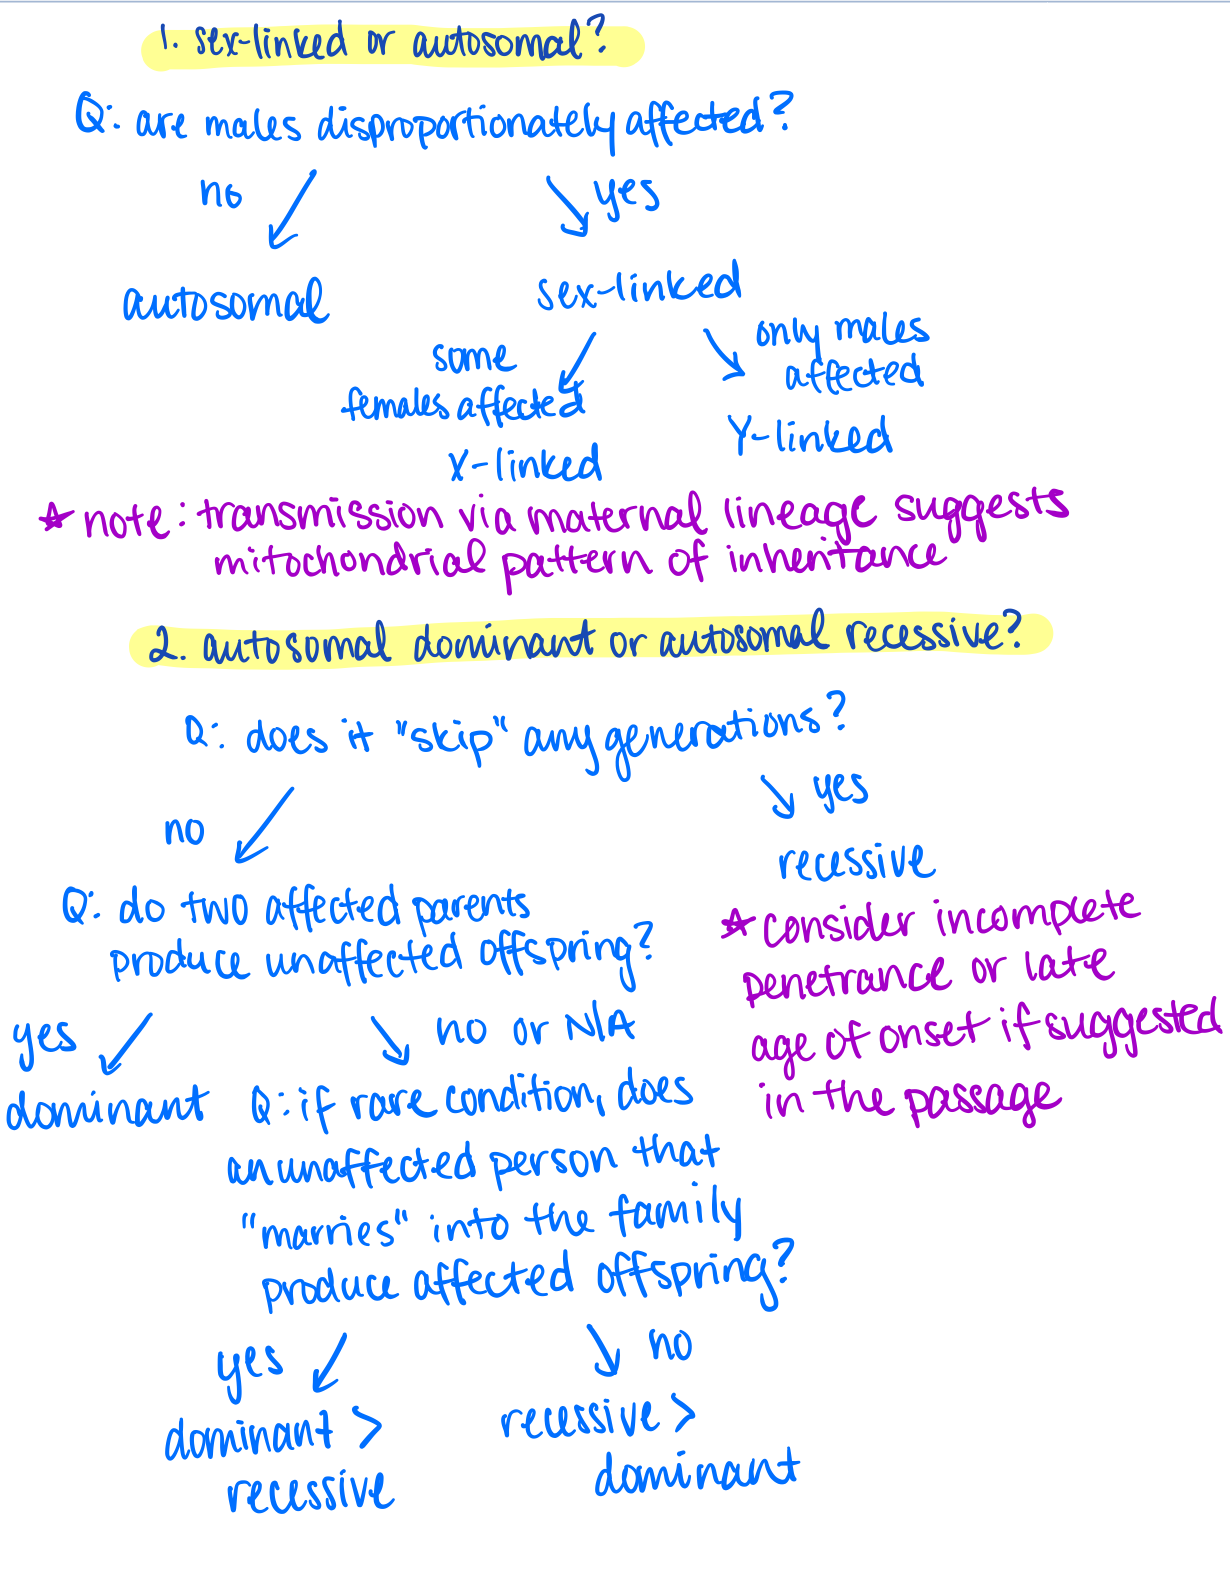 1. sex-linked or autosomal?
Q: are males disproportionately affected?
no
yes
autosomal
sex-linked
some
females affected
only males
affected
X-linked
Y-linked
☆ note: transmission via maternal lineage suggests
mitochondrial pattern of inheritance
2. autosomal dominant or autosomal recessive?
Q: does it "skip" any generations?
no
yes
recessive
☆ consider incomplete
penetrance or late
age of onset if suggested
in the passage
Q: do two affected parents
produce unaffected offspring?
yes
no or N/A
dominant
Q: if rare condition, does
an unaffected person that
"marries" into the family
produce affected offspring?
yes
no
dominant >
recessive
recessive >
dominant